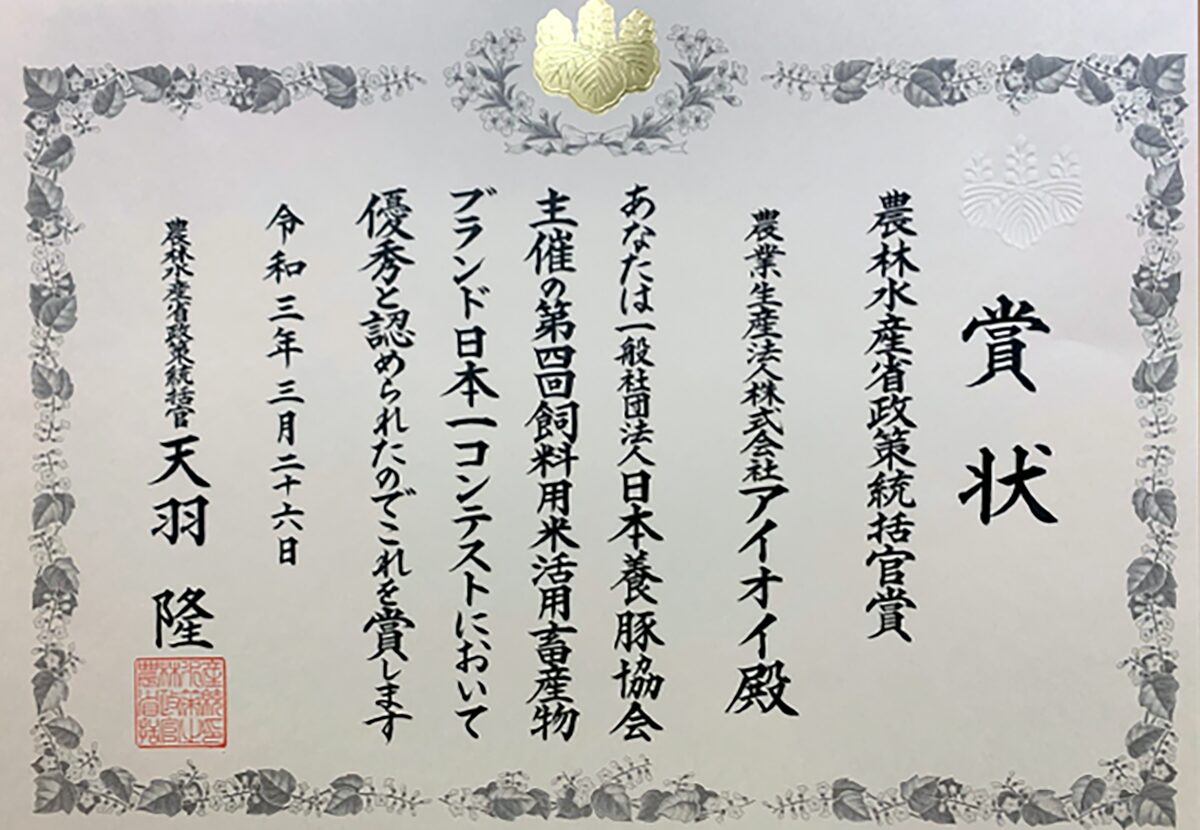 賞状
農林水産省政策統括官賞
農業生産法人株式会社アイオイ殿
あなたは一般社団法人日本養豚協会
主催の第四回飼料用米活用畜産物
ブランド日本一コンテストにおいて
優秀と認められたのでこれを賞します
令和三年三月二十六日
農林水産省政策統括官天羽隆